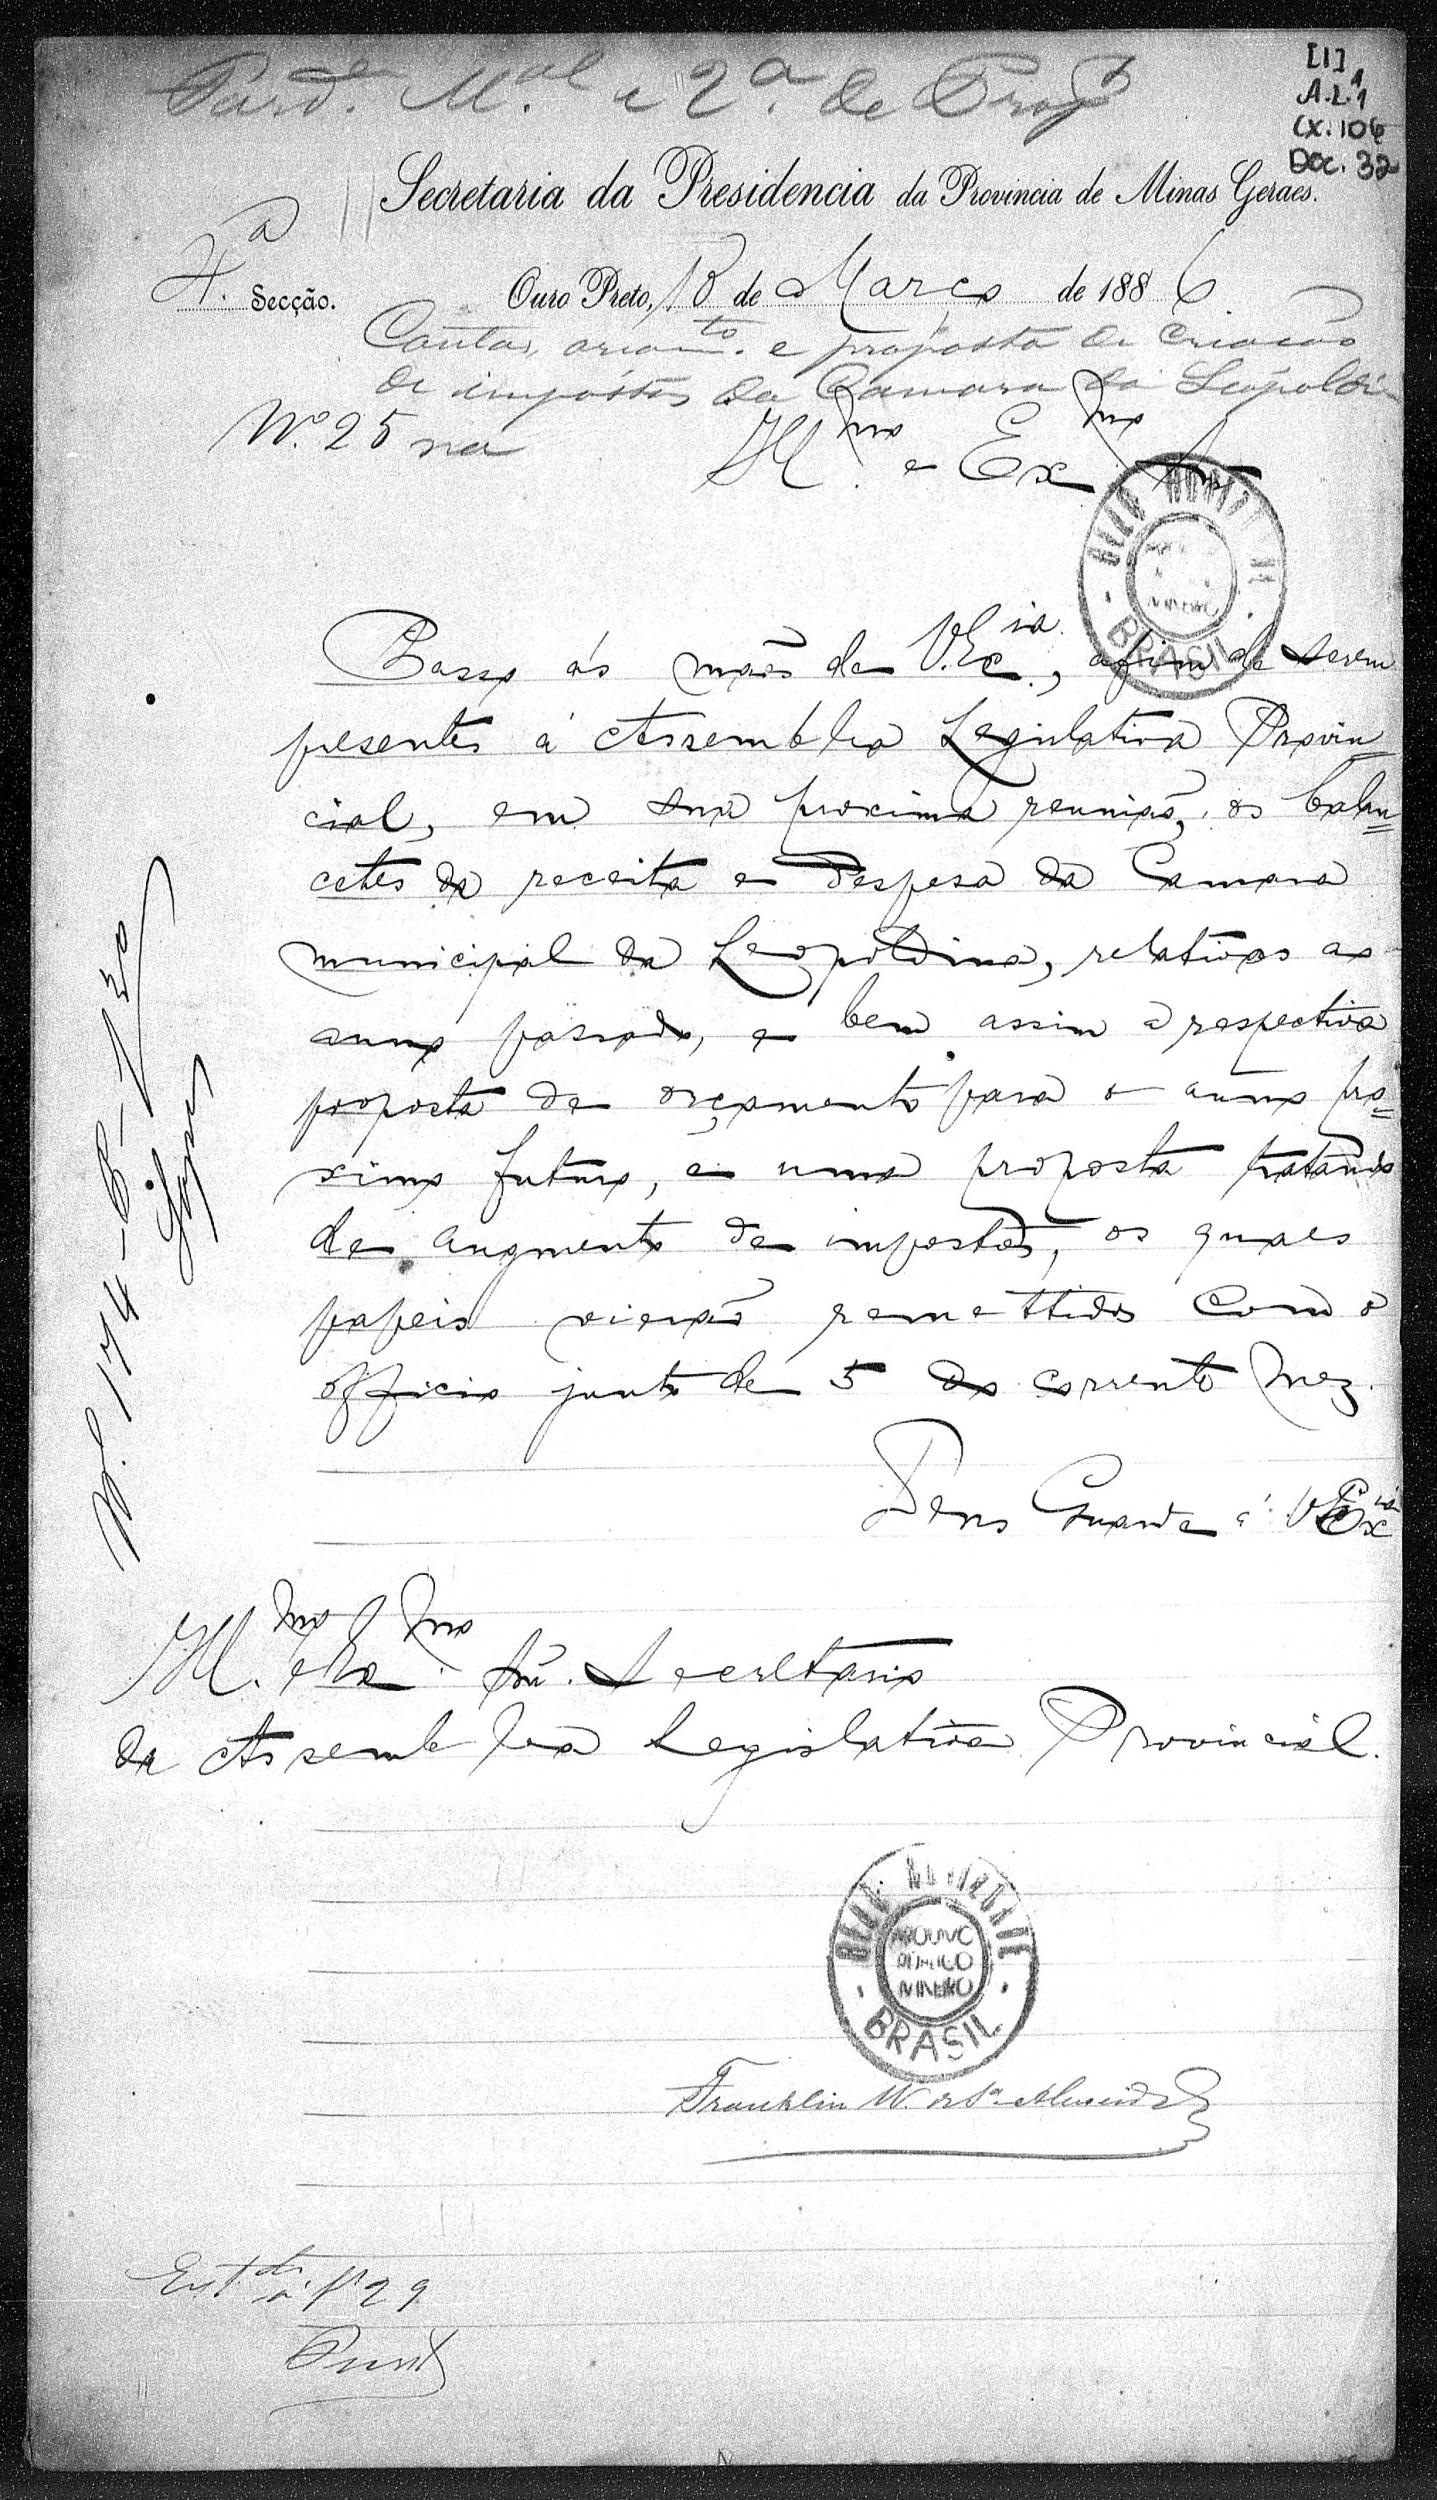 [1]
A.L.1
CX. 106
Doc. 32
M.al e 2ª. de
Secretaria da Presidencia da Provincia de Minas Geraes.
4.ª Secção. Ouro Preto, 18 de Março de 1886
Contas, orçam.to e proposta de criação
de impostos da Camara da Leopoldi-
na
Nº 25
Ill.mo e Ex.mo Snr
BELO HORIZONTE
MINEIRO
BRASIL
Passo ás mãos de V. Ex.cia, afim de serem
presentes á Assembléa Legislativa Provin=
cial, em sua proxima reunião, os balan=
cetes da receita e despesa da Camara
municipal da Leopoldina, relativos ao
anno passado, e bem assim a respectiva
proposta de orçamento para o anno pro=
ximo futuro, e uma proposta tratando
de augmento de impostos, os quaes
papeis vierão remettidos com o
officio junto de 5 do corrente mez.
Deus Guarde á V. Ex.cia
Ill.mo e Ex.mo Snr. Secretario
da Assembléa Legislativa Provincial.
BELO HORIZONTE
ARQUIVO
PÚBLICO
MINEIRO
BRASIL
Franklin W. de Sª Almeida
á fl 29
N.º 174